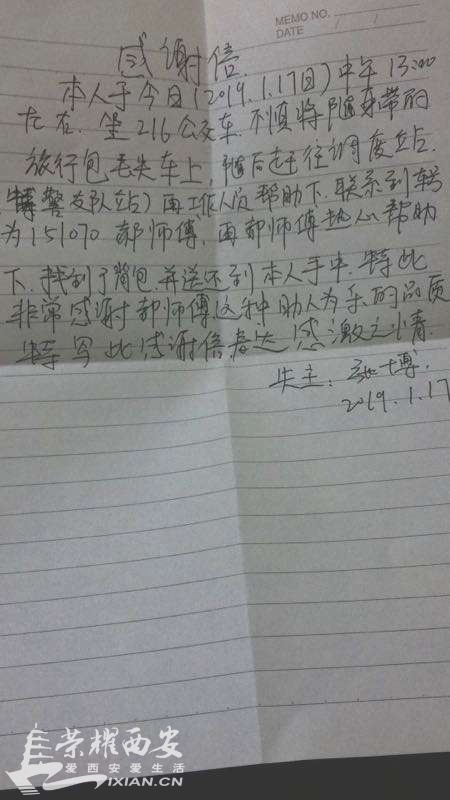 MEMO NO.
DATE / /
感谢信
本人于今日(2019.1.17日)中午13:00
左右.坐216公交车.不慎将随身带的
旅行包丢失车上,随后赶往调度站.
(特警支队站)再工作人员帮助下.联系到车号
为151070郭师傅.再郭师傅热心帮助
下.找到了背包.并送还到本人手中.特此
非常感谢郭师傅这种助人为乐的品质
特写此感谢信表达感激之情
失主:张博.
2019.1.17
荣耀西安
爱西安爱生活
IXIAN.CN